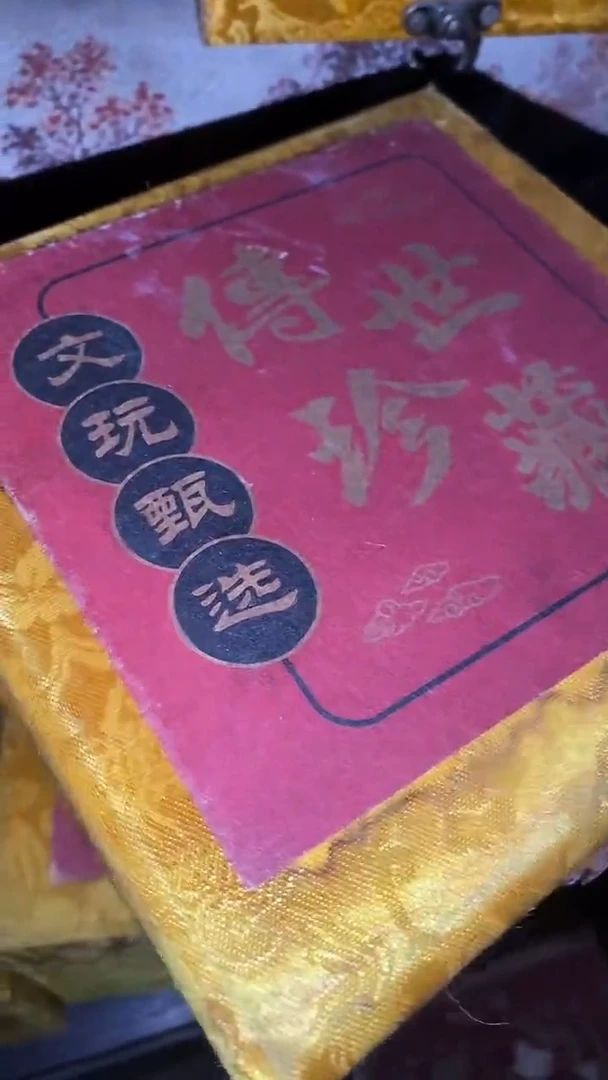 傳世
珍藏
文玩甄选